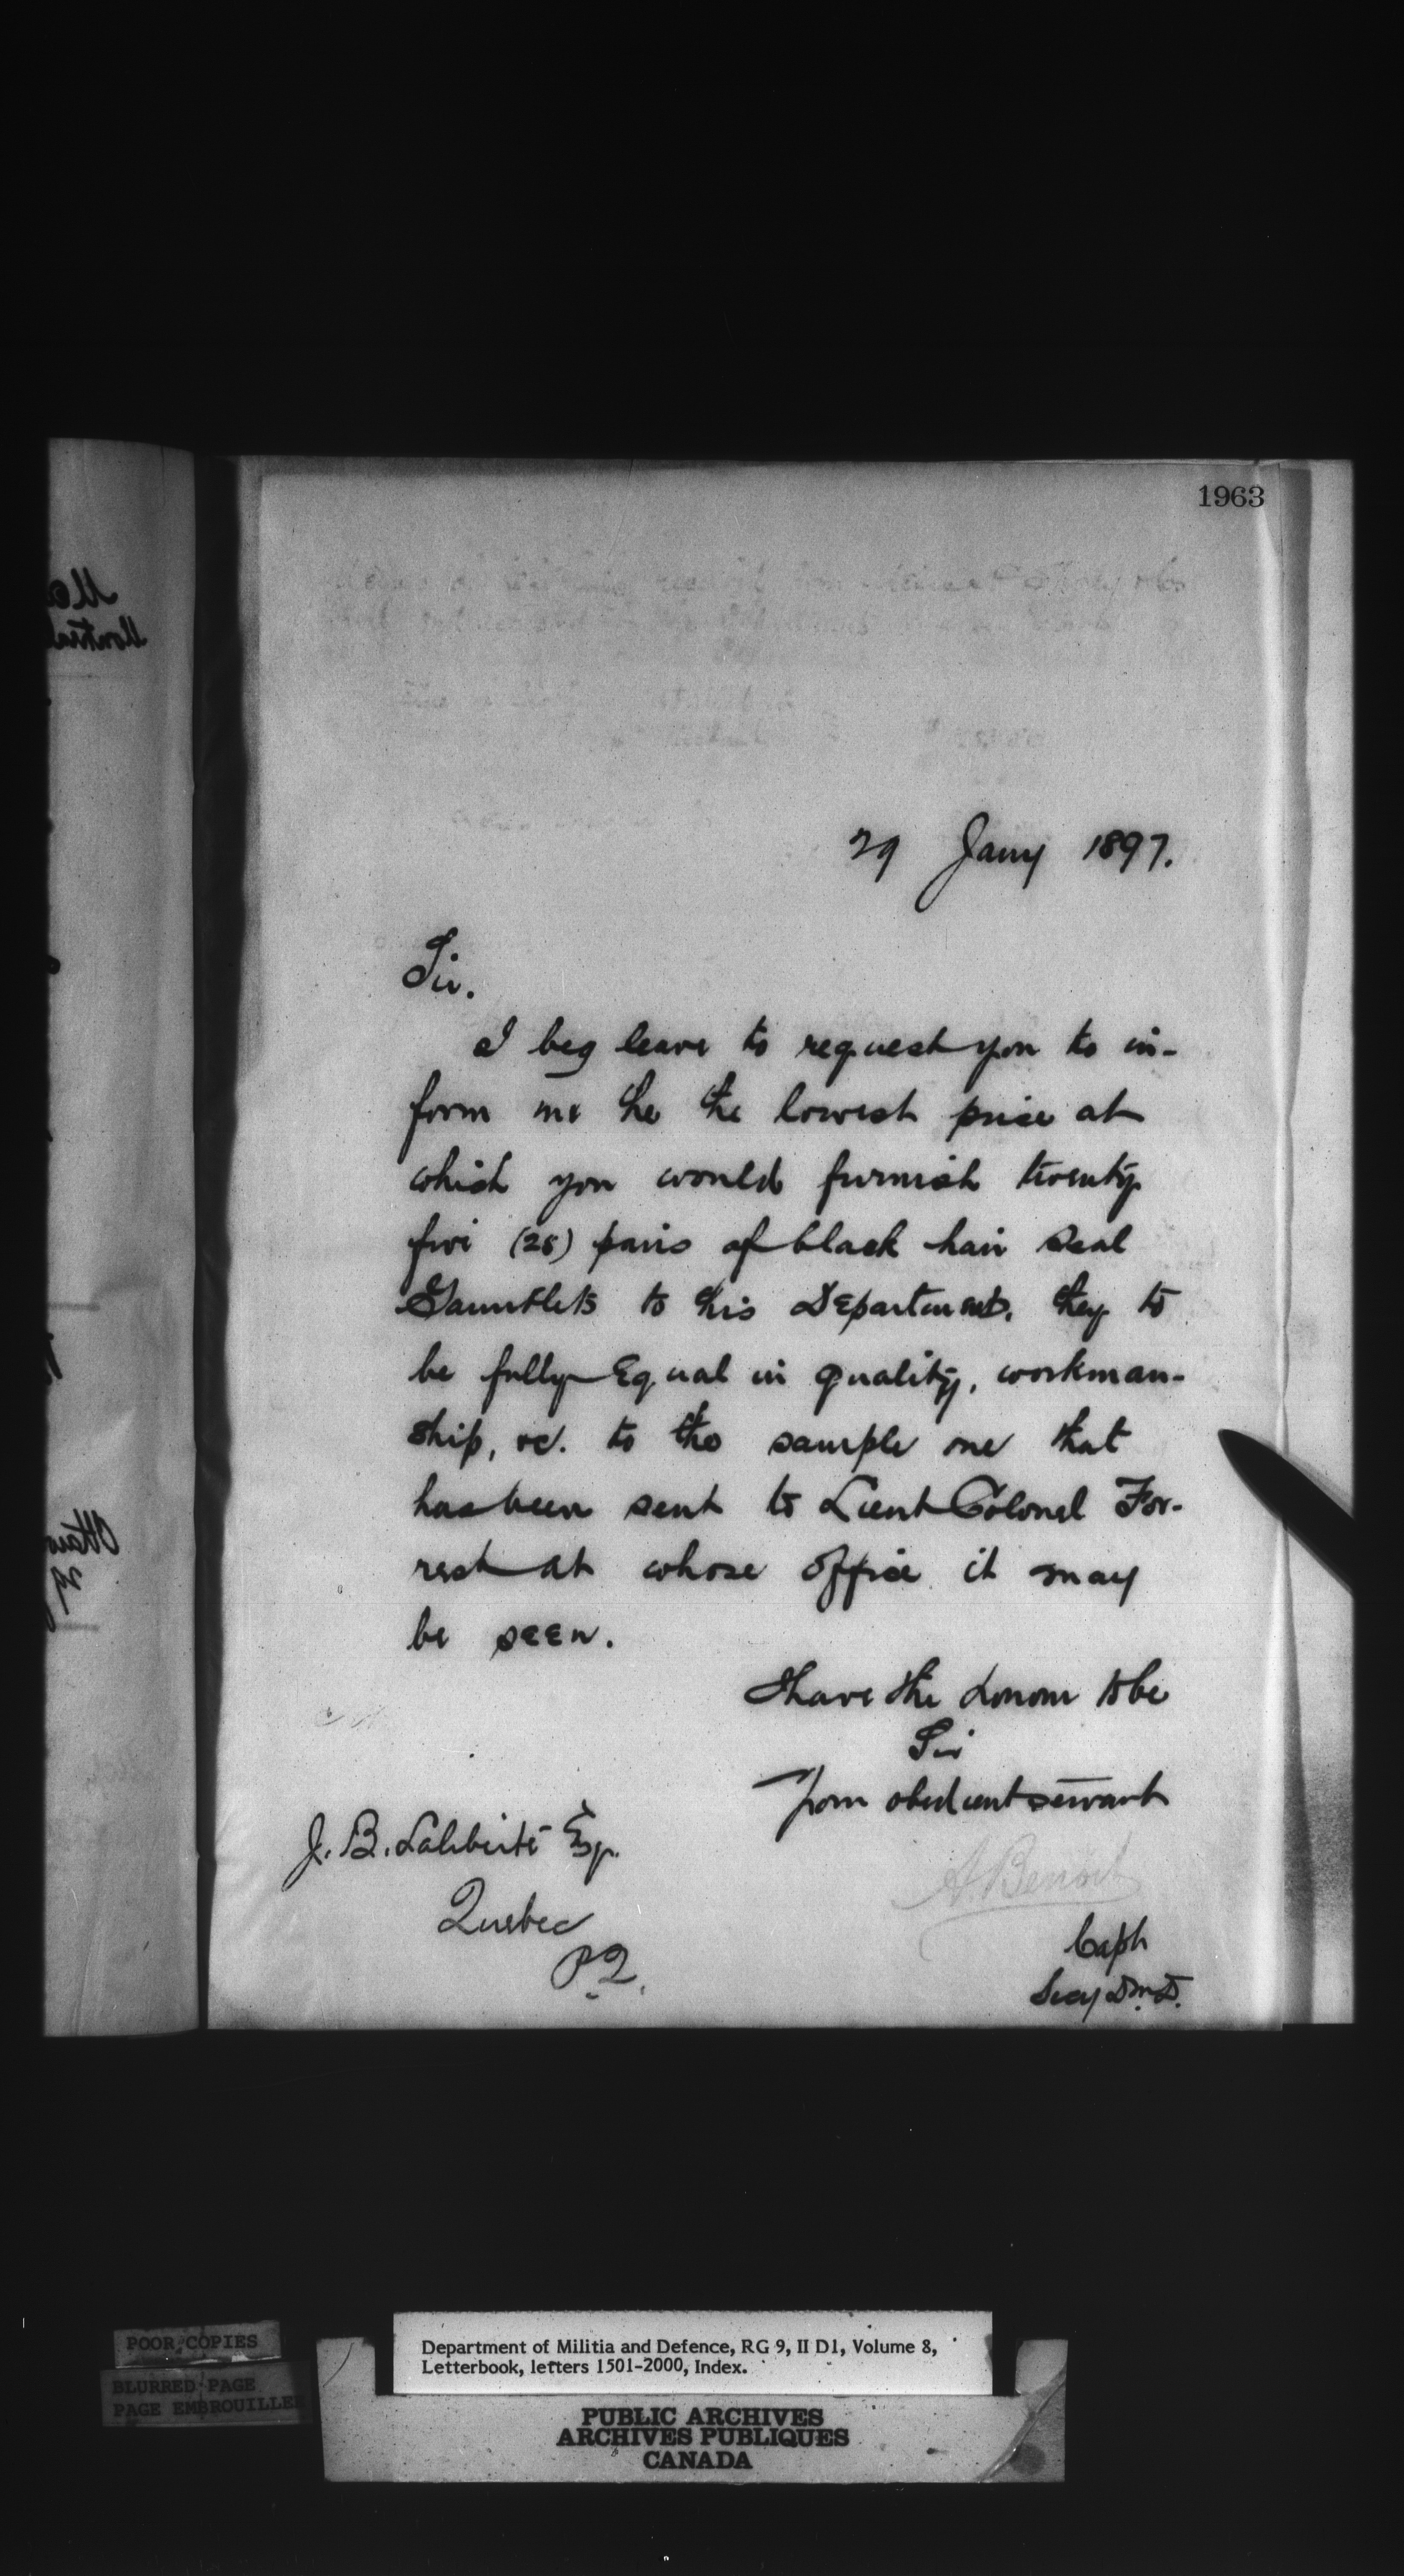 1963
29 Jany 1897.
Sir.
I beg leave to request you to in-
form me the the lowest price at
which you would furnish twenty
five (25) pairs of black hair seal
Gauntlets to this Department. they to
be fully Equal in quality, workman-
ship, &c. to the sample one that
has been sent to Lieut Colonel For-
rest at whose office it may
be seen.
I have the honour to be
Sir
Your obedient servant
A Benoit
Capt
Secy D.M.D.
J. B. Laliberté Esq.
Quebec
P.Q.
POOR COPIES
BLURRED PAGE
PAGE EMBROUILLE
Department of Militia and Defence, RG 9, II D1, Volume 8,
Letterbook, letters 1501-2000, Index.
PUBLIC ARCHIVES
ARCHIVES PUBLIQUES
CANADA